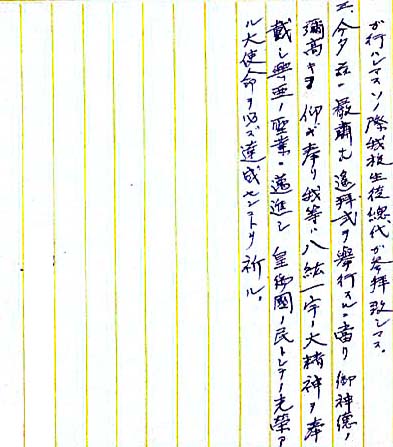 が行ハレマスソノ際我校生徒総代が参拝致シマス。
五、今夕茲ニ厳粛ナ遙拝式ヲ挙行スルニ当リ御神徳
彌高キヲ仰ギ奉リ我等ハ八紘一宇ノ大精神ヲ奉
戴シ興亜ノ聖業ニ邁進シ皇御國ノ民トシテノ光栄ア
ル大使命ヲ必ズ達成センコトヲ祈ル。